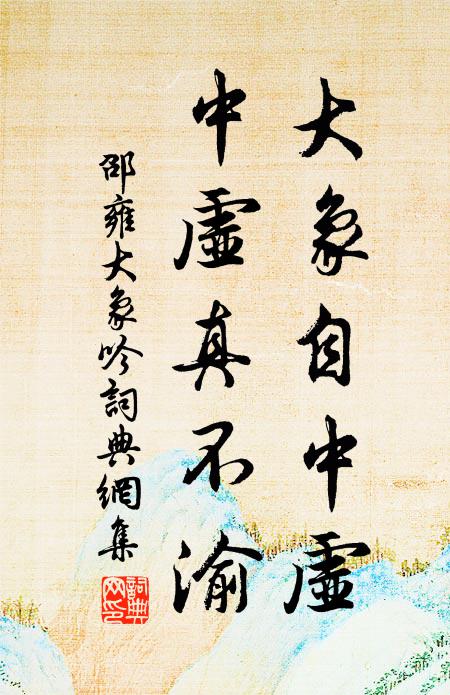 大象自中虛
中虛真不渝
邵雍大象吟詞典網集
詞典
網印